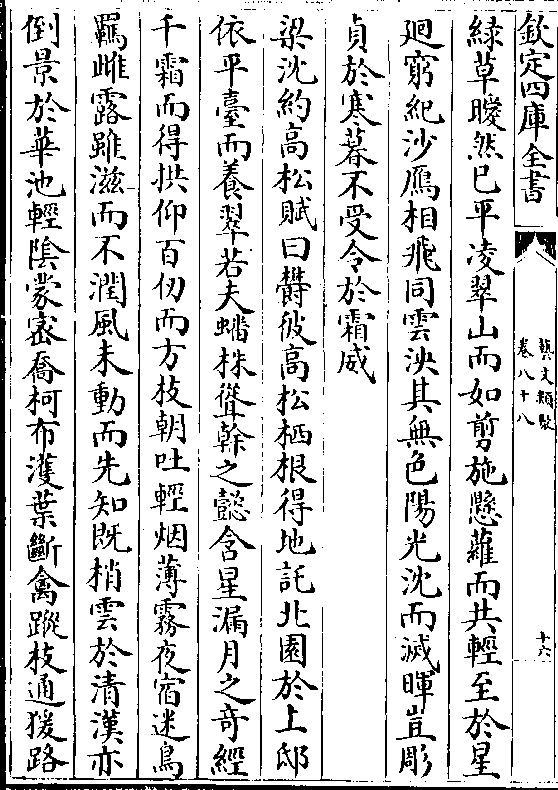 欽定四庫全書
藝文類聚
卷八十八
十六
緑草曖然已平凌翠山而如剪施懸蘿而共輕至於星
廻窮紀沙鴈相飛同雲泱其無色陽光沈而滅暉豈彫
貞於寒暮不受令於霜威
梁沈約高松賦曰欝彼高松栖根得地託北園於上邸
依平臺而養翠若夫蟠株聳幹之懿含星漏月之奇經
千霜而得拱仰百仞而方枝朝吐輕烟薄霧夜宿迷鳥
羈雌露雖滋而不潤風未動而先知既梢雲於清漢亦
倒景於華池輕陰蒙宻喬柯布濩葉斷禽蹤枝通猨路